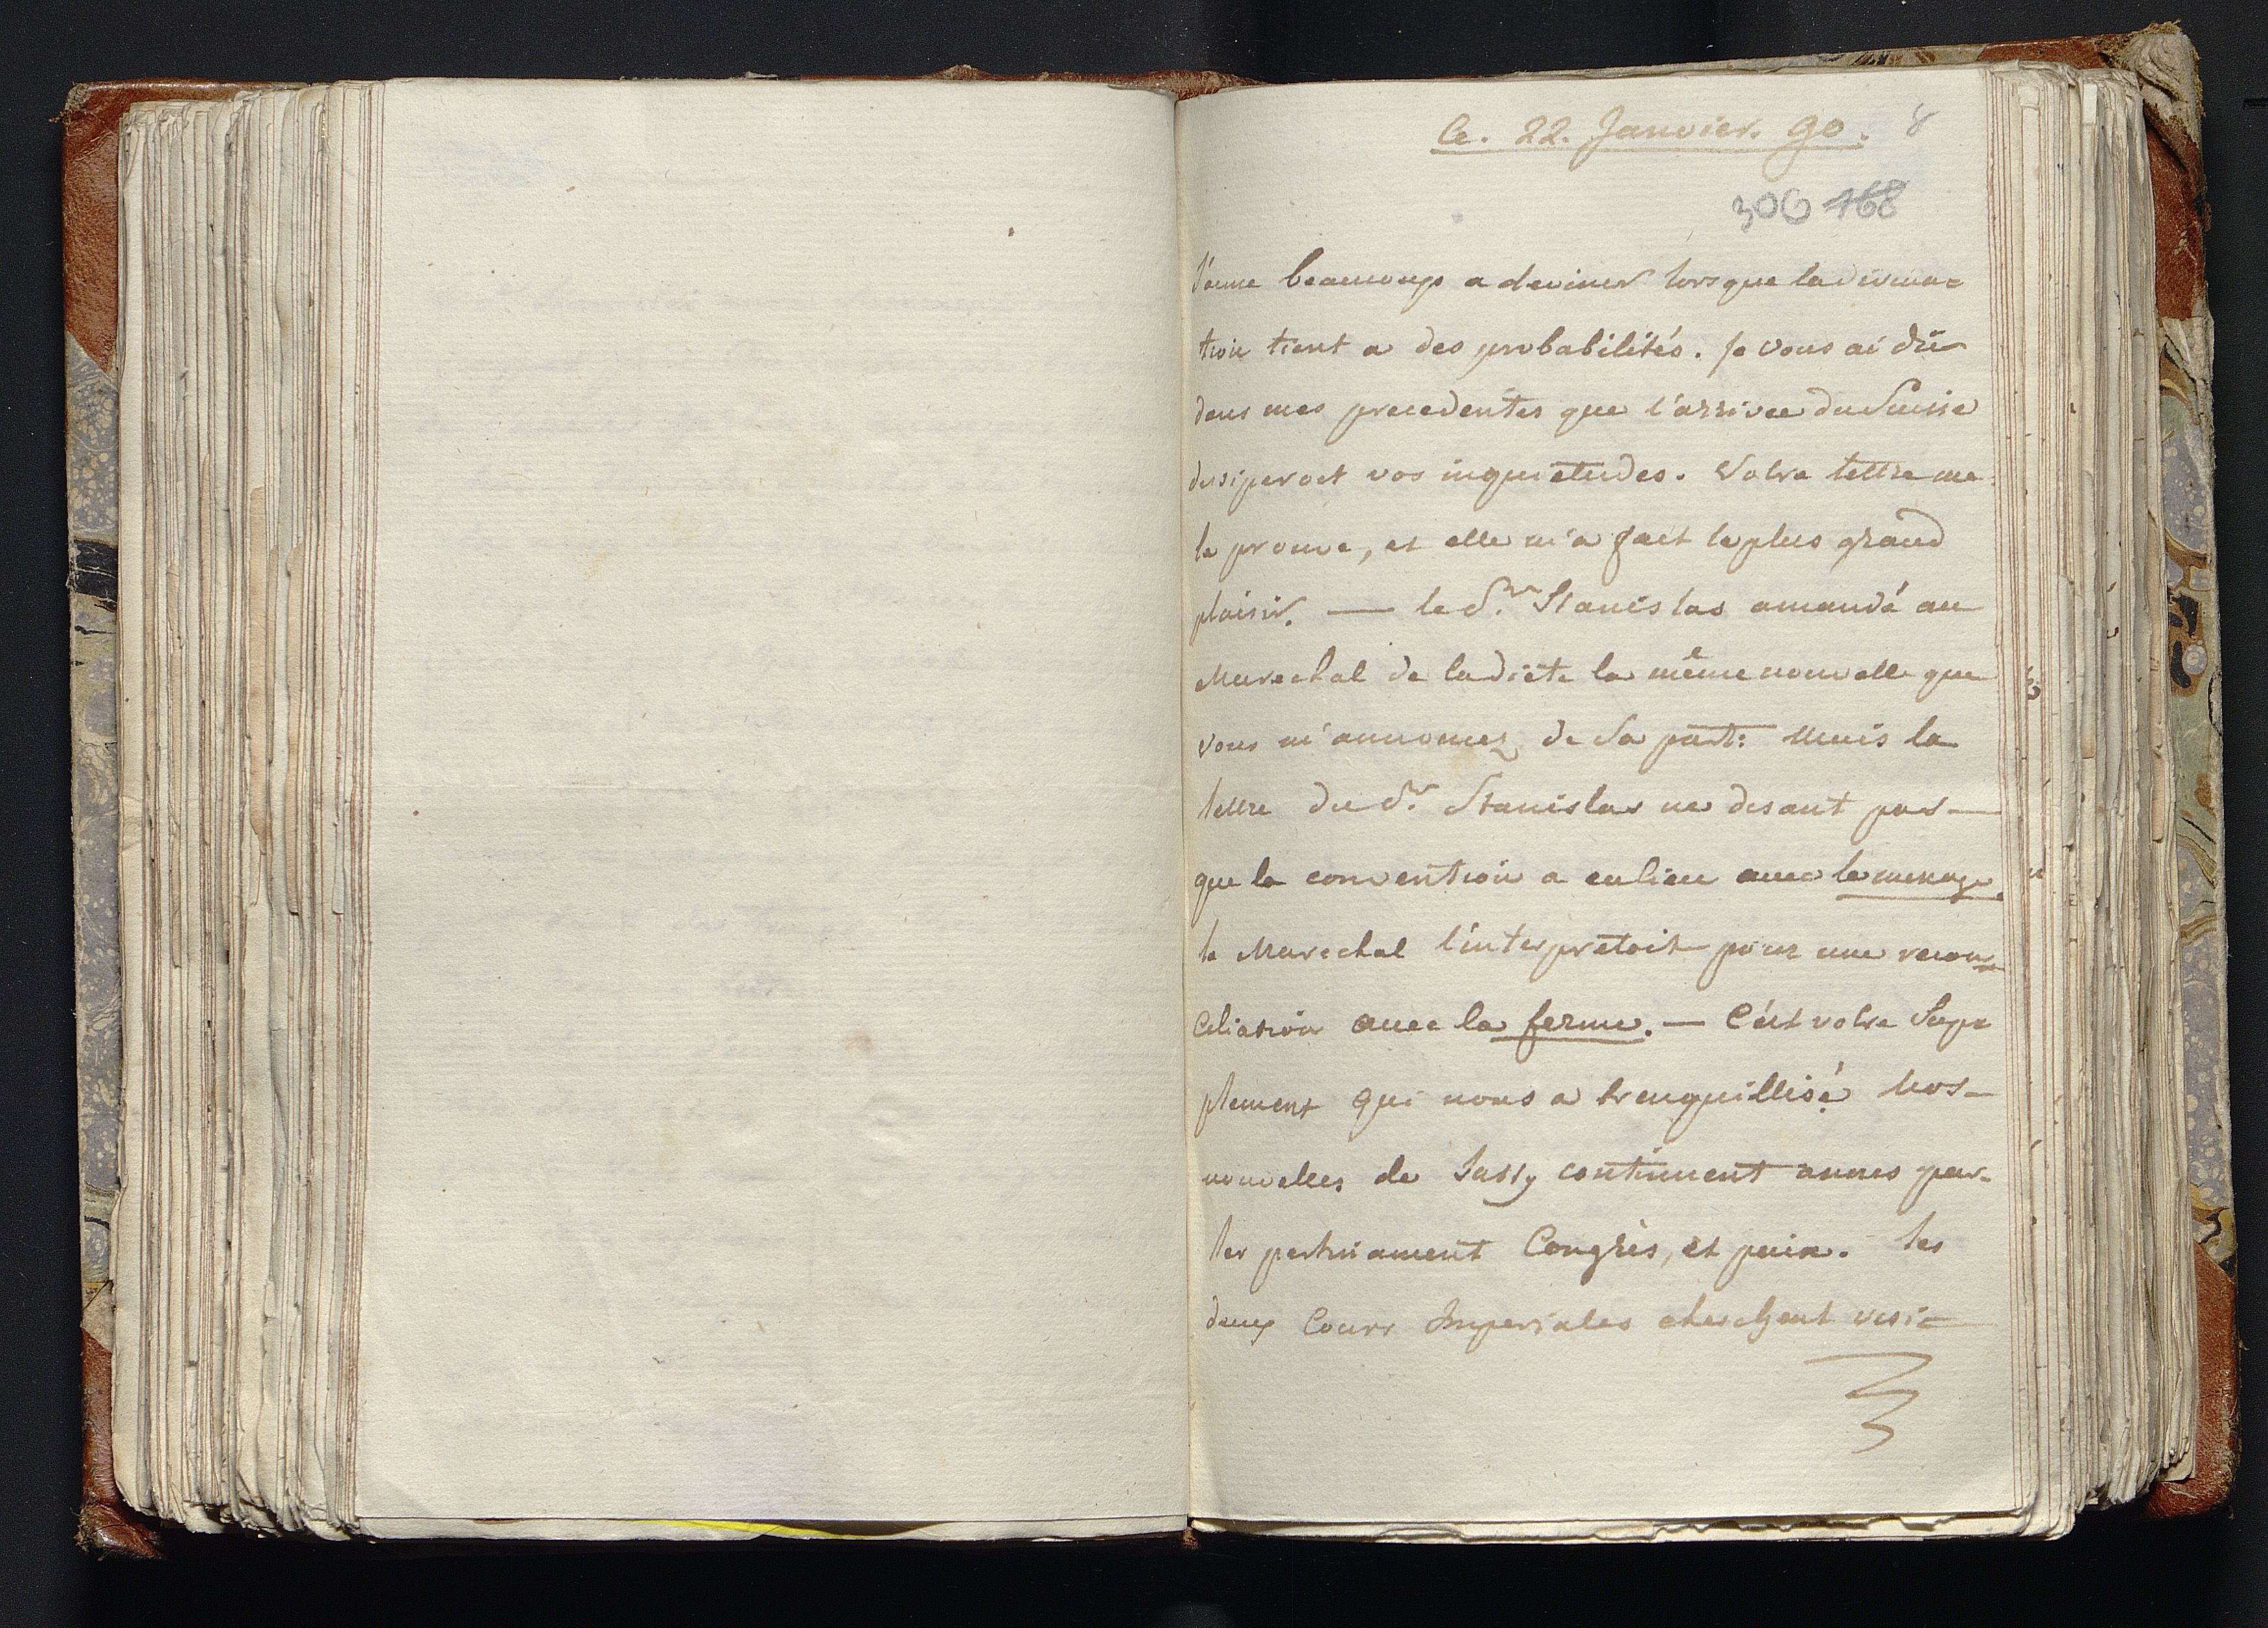 Ce. 22. Janvier. 90. 8
306 168
J'aime beaucoup a deviner lorsque la divina=
tion tient a des probabilités. Je vous ai dit
dans mes precedentes que l'arrivee du Suisse
dissiperoit vos inquietudes. Votre lettre me
le prouve, et elle m'a fait le plus grand
plaisir. — le Sr. Stanislas a mandé au
Marechal de la diéte la même nouvelle que
vous m'annoncez de Sa part: Mais la
lettre du Sr. Stanislas ne disant pas —
que la convention a eu lieu avec le menage
le Marechal l'interpretoit pour une recon=
ciliation avec la ferme. — C'est votre Sup=
plement qui nous a trenquillisé. Nos —
nouvelles de Jassy continuent a nous par=
ler Congrès, et paix. les
deux Cours Imperiales cherchent